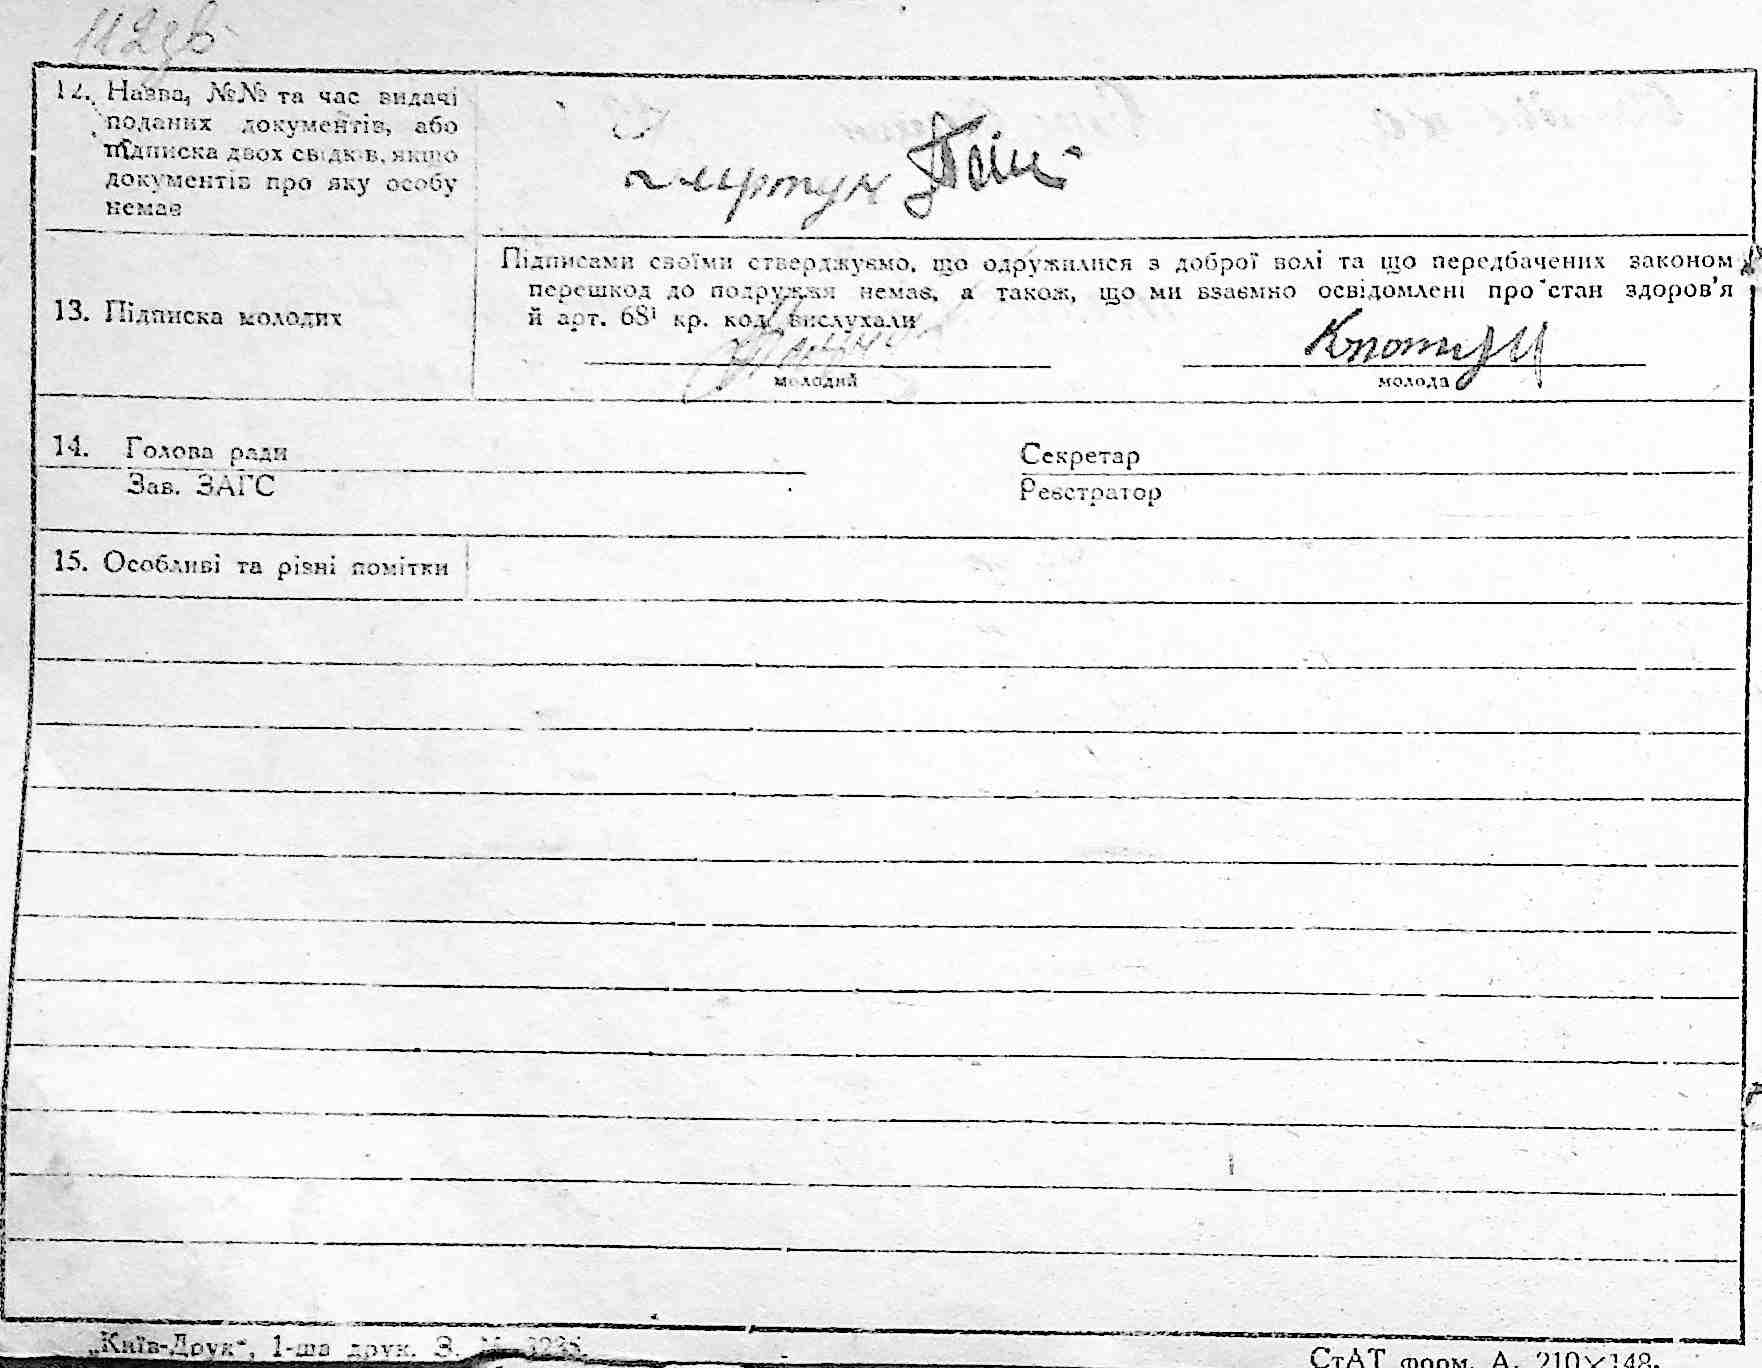 112зв
12. Назва, №№ та час видачі
поданих документів, або
підписка двох свідків, якщо
документів про яку особу
немає
Підписами своїми стверджуємо, що одружилися з доброї волі та що передбачених законом
перешкод до подружжя немає, а також, що ми взаємно освідомлені про стан здоров'я
13. Підписка молодих
й арт. 68¹ кр. код. вислухали
молодий
молода
14. Голова ради
Секретар
Зав. ЗАГС
Реєстратор
15. Особливі та різні помітки
„Київ-Друк“, 1-ша друк. З.
СтАТ форм. А. 210×148.